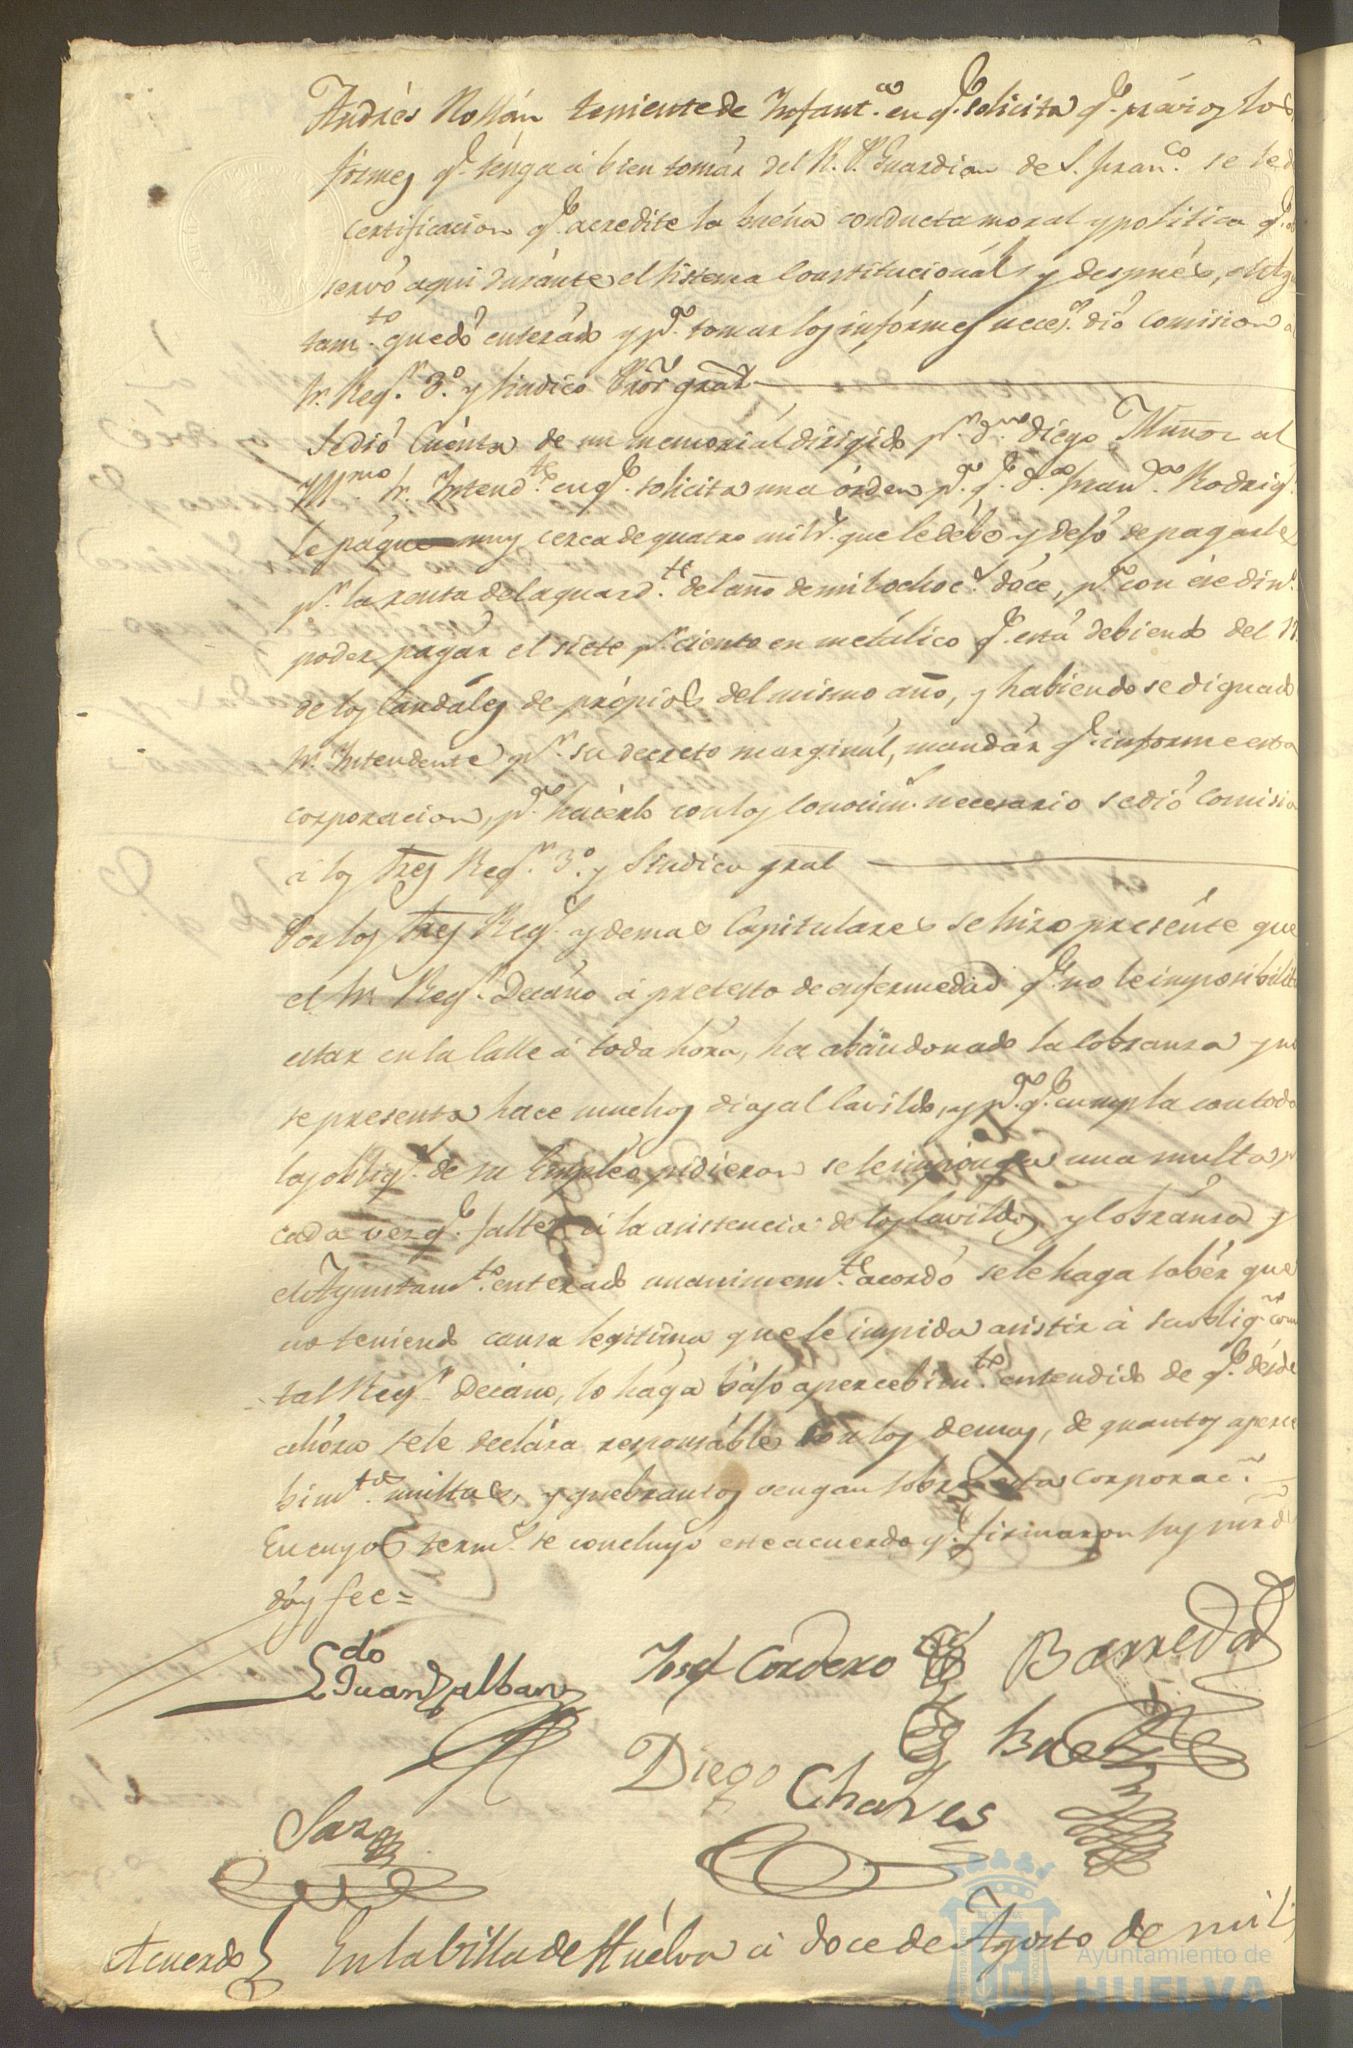 Andrés Roldán teniente de Infant.ª en q.e solicita q.e prévios los
fórmes q.e tenga á bien tomár del R. P. Guardian de S. Fran.co se le d
certificacion q.e acredite la buena conducta moral y politica q.e
servó aqui duránte el sistema Constitucionál y después, el Ayu
tam.to quedó enterádo y p.a tomar los infórmes neces.s dió Comision
Sr. Reg.r 3.º y Sindico Pror gral
Se dió Cuenta de un memoriál dirigido p.r d.n Diego Muñoz al
Yllmo Sr. Intend.te en q.e solicita una órden p.a q.e d.n Fran.co Rodrig.
le págue muy cerca de quatro mil r.s que le debe y dejó de pagarle
p.r la renta del aguard.te del año de mil ochoc.s dóce, p.a con ese din.
poder pagár el siete p.r ciento en metálico q.e está debiendo del
de los Caudáles de própios del mismo año, y habiendose dignado
Sr. Intendente p.r su decreto marginál, mandár q.e informe esta
corporacion, p.a hacérlo con los Conocim.s necesario se dió Comisio
á los Sres Reg.r 3.º y Sindico gral
Por los Sres Reg.s y demas Capitulares se hizo presénte que
el Sr. Reg.r Decáno á pretesto de enfermedad q.e no le imposibilit
estar en la Calle á toda hóra, ha abandonado la Cobranza y no
se presenta hace muchos dias al Cavildo, y p.a q.e cumpla con todo
las oblig.s de su Empléo pidieron se le impónga una multa p
cada vez q.e falte á la asistencia de los Cavildos y Cobránza y
el Ayuntam.to enterado unanimem.te acordó se le haga sabér que
no teniendo causa legitima que le impida asistir á su oblig.n com
tal Reg.r Decáno, lo haga bájo apercebim.to entendido de q.e désde
ahóra se le declára responsáble con los demas, de quantos aperce
bim.tos multas, y quebrantos vengan sobre esta corporac.n
En cuyos term.s se concluyo este acuerdo q.e firmaron sus mrds
dóy fee =
Ldo Juan Zalban
Josef Cordero
Barreda
Diego Chaves
Baez
Sarz
Acuerdo } En la billa de Huélva á doce de Agosto de mil
Ayuntamiento de
HUELVA